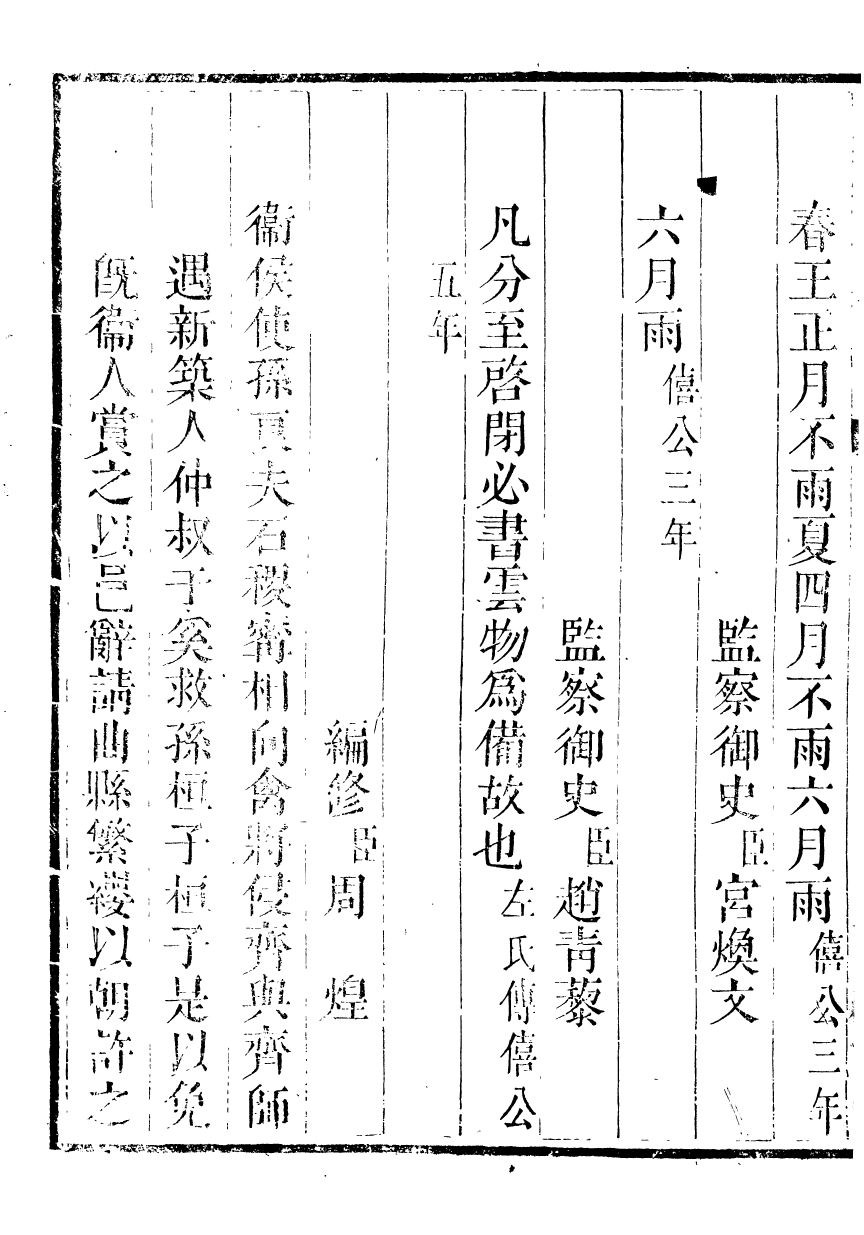 春王正月不雨夏四月不雨六月雨僖公三年
監察御史臣宮煥文
六月雨僖公三年
監察御史臣趙青藜
凡分至啓閉必書雲物爲備故也左氏傳僖公
五年
編修臣周煌
衞侯使孫良夫石稷甯相向禽將侵齊與齊師
遇新築人仲叔于奚救孫桓子桓子是以免
旣衞人賞之以邑辭請曲縣繁纓以朝許之